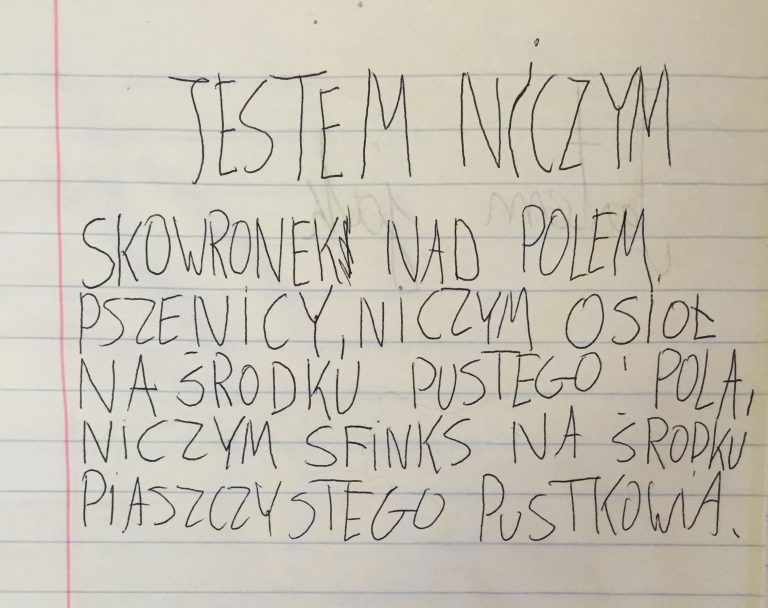 JESTEM NiCZYM
SKOWRONEK NAD POLEM
PSZENiCY, NiCZYM OSiOŁ
NA ŚRODKU PUSTEGO POLA,
NiCZYM SFiNKS NA ŚRODKU
PiASZCZYSTEGO PUSTKOWiA.